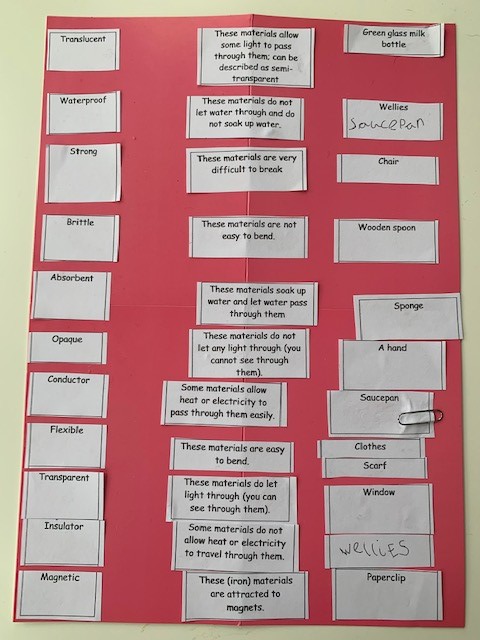 Translucent
These materials allow
some light to pass
through them; can be
described as semi-
transparent
Green glass milk
bottle
Waterproof
These materials do not
let water through and do
not soak up water.
Wellies
Saucepan
Strong
These materials are very
difficult to break
Chair
Brittle
These materials are not
easy to bend.
Wooden spoon
Absorbent
These materials soak up
water and let water pass
through them
Sponge
Opaque
These materials do not
let any light through (you
cannot see through
them).
A hand
Conductor
Some materials allow
heat or electricity to
pass through them easily.
Saucepan
Flexible
These materials are easy
to bend.
Clothes
Scarf
Transparent
These materials do let
light through (you can
see through them).
Window
Insulator
Some materials do not
allow heat or electricity
to travel through them.
wellies
Magnetic
These (iron) materials
are attracted to
magnets.
Paperclip